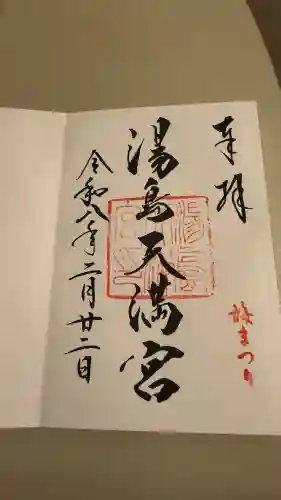 奉拝
梅まつり
湯島天満宮
令和八年二月廿二日